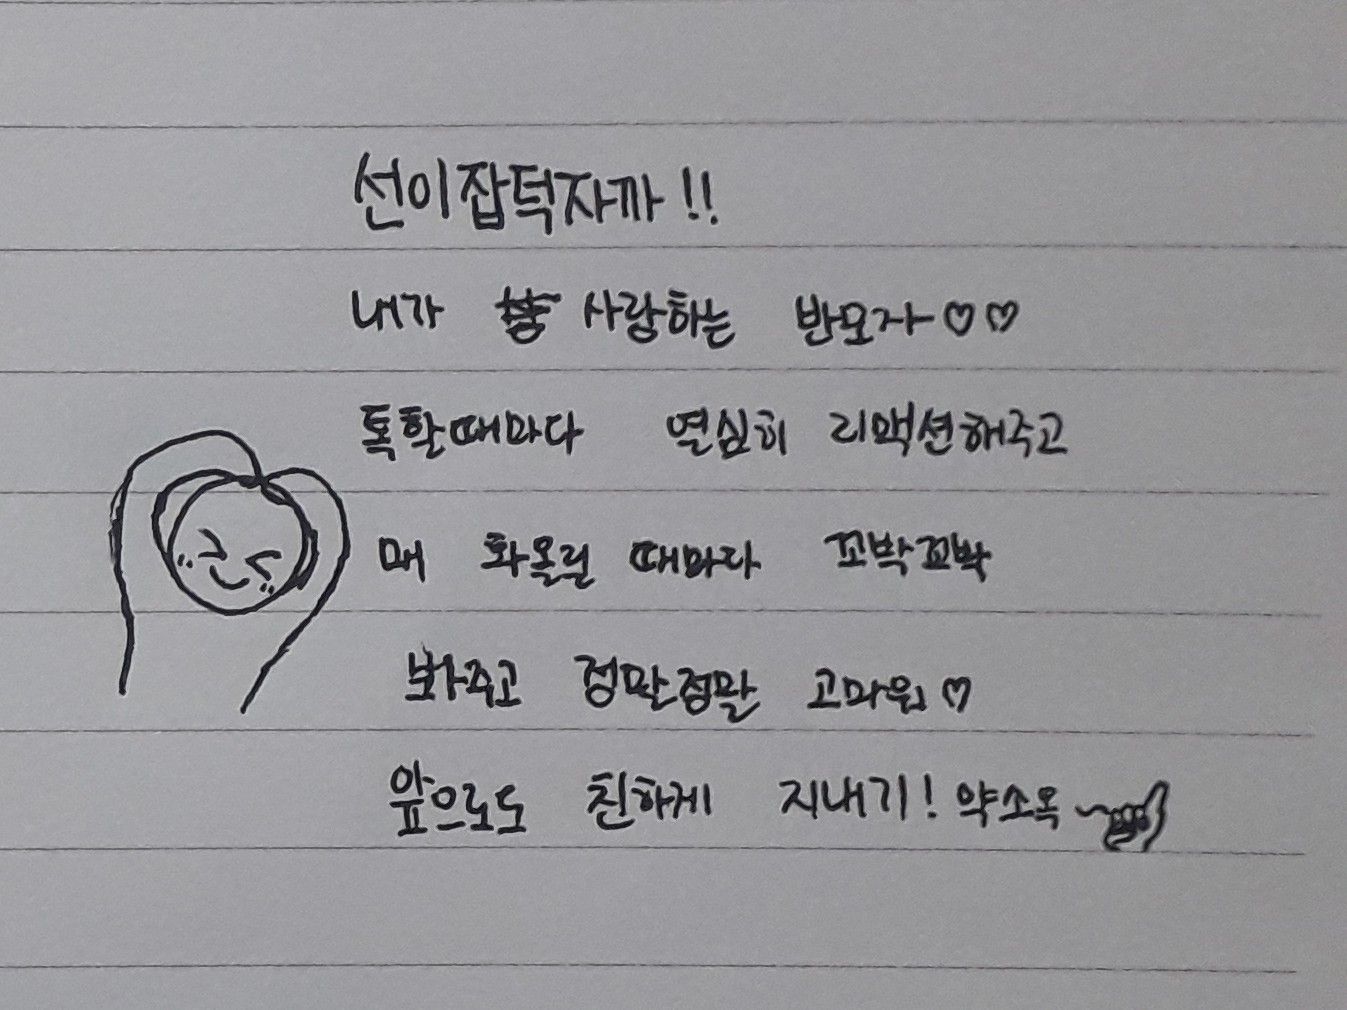 선이잡덕자까!!
내가 사랑하는 반모자♡♡
톡할때마다 열심히 리액션해주고
매 화올릴 때마다 꼬박꼬박
봐주고 정말정말 고마워♡
앞으로도 친하게 지내기! 약소옥~